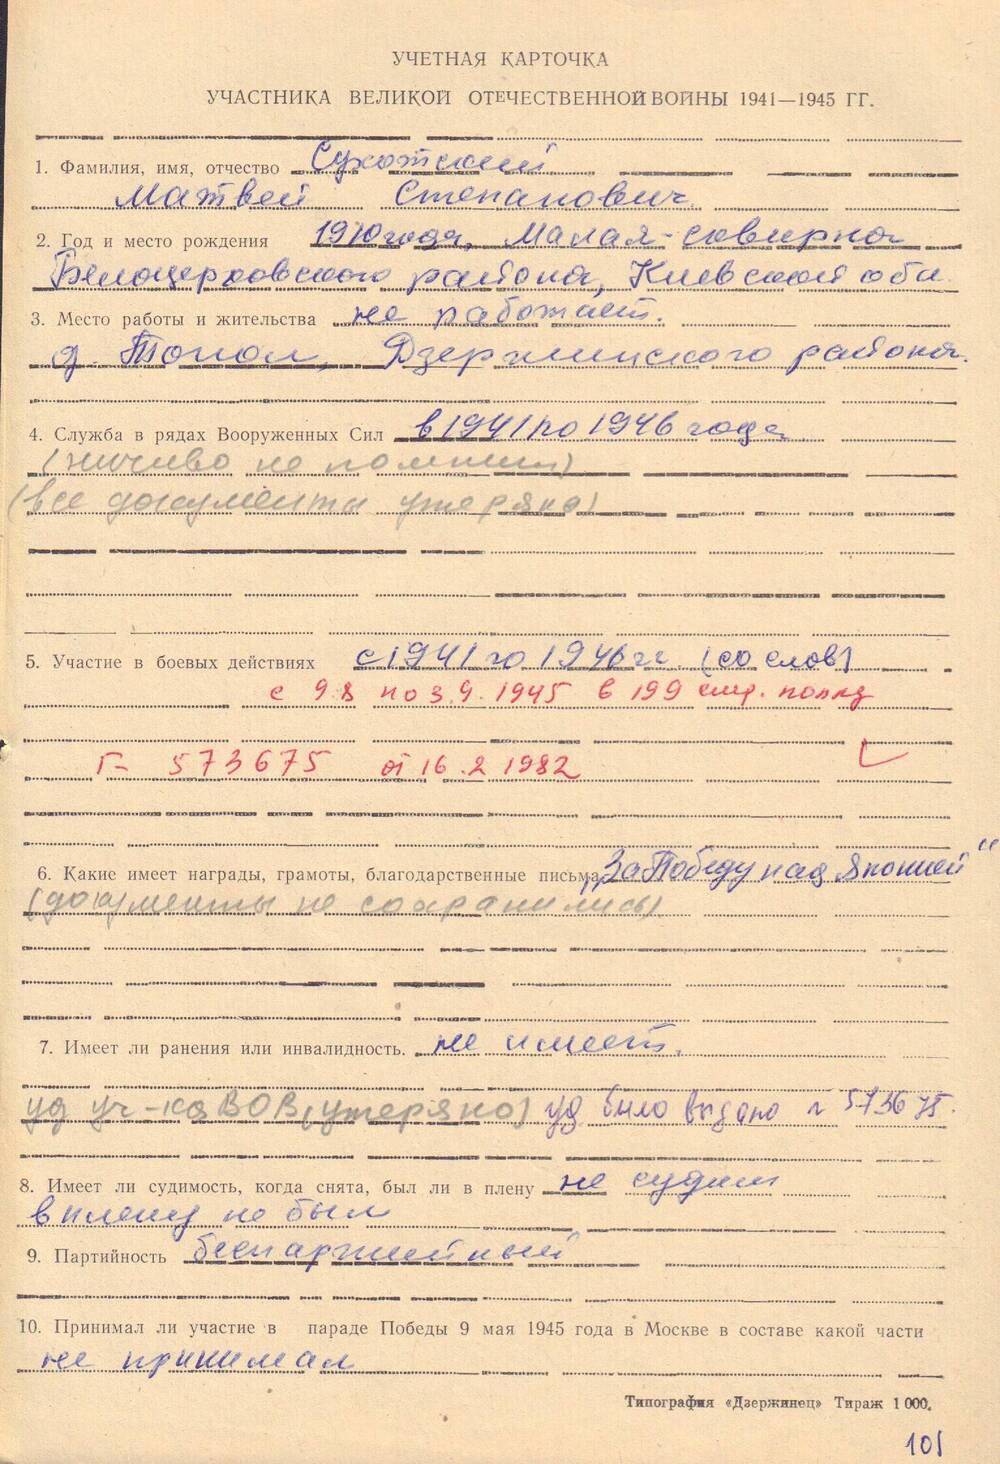 УЧЕТНАЯ КАРТОЧКА
УЧАСТНИКА ВЕЛИКОЙ ОТЕЧЕСТВЕННОЙ ВОЙНЫ 1941—1945 ГГ.
1. Фамилия, имя, отчество Сухотский
Матвей Степанович
2. Год и место рождения 1910 года, Малая-совирка
Белоцерковского района, Киевской обл.
3. Место работы и жительства не работает.
д. Топол, Дзержинского района.
4. Служба в рядах Вооруженных Сил в 1941 по 1946 года
(ничиво не помнит)
(все документы утеряно)
5. Участие в боевых действиях с 1941 по 1946 гг. (со слов)
с 9.8 по 3.9.1945 в 199 стр. полку
Г- 573675 от 16.2 1982
6. Какие имеет награды, грамоты, благодарственные письма „За Победу над Японией“
(документы не сохранились)
7. Имеет ли ранения или инвалидность. не имеет.
уд уч-ка ВОВ (утеряно) уд было выдано г 573675.
8. Имеет ли судимость, когда снята, был ли в плену не судим
в плену не был
9. Партийность беспартийный
10. Принимал ли участие в параде Победы 9 мая 1945 года в Москве в составе какой части
не принимал
Типография «Дзержинец» Тираж 1 000.
101